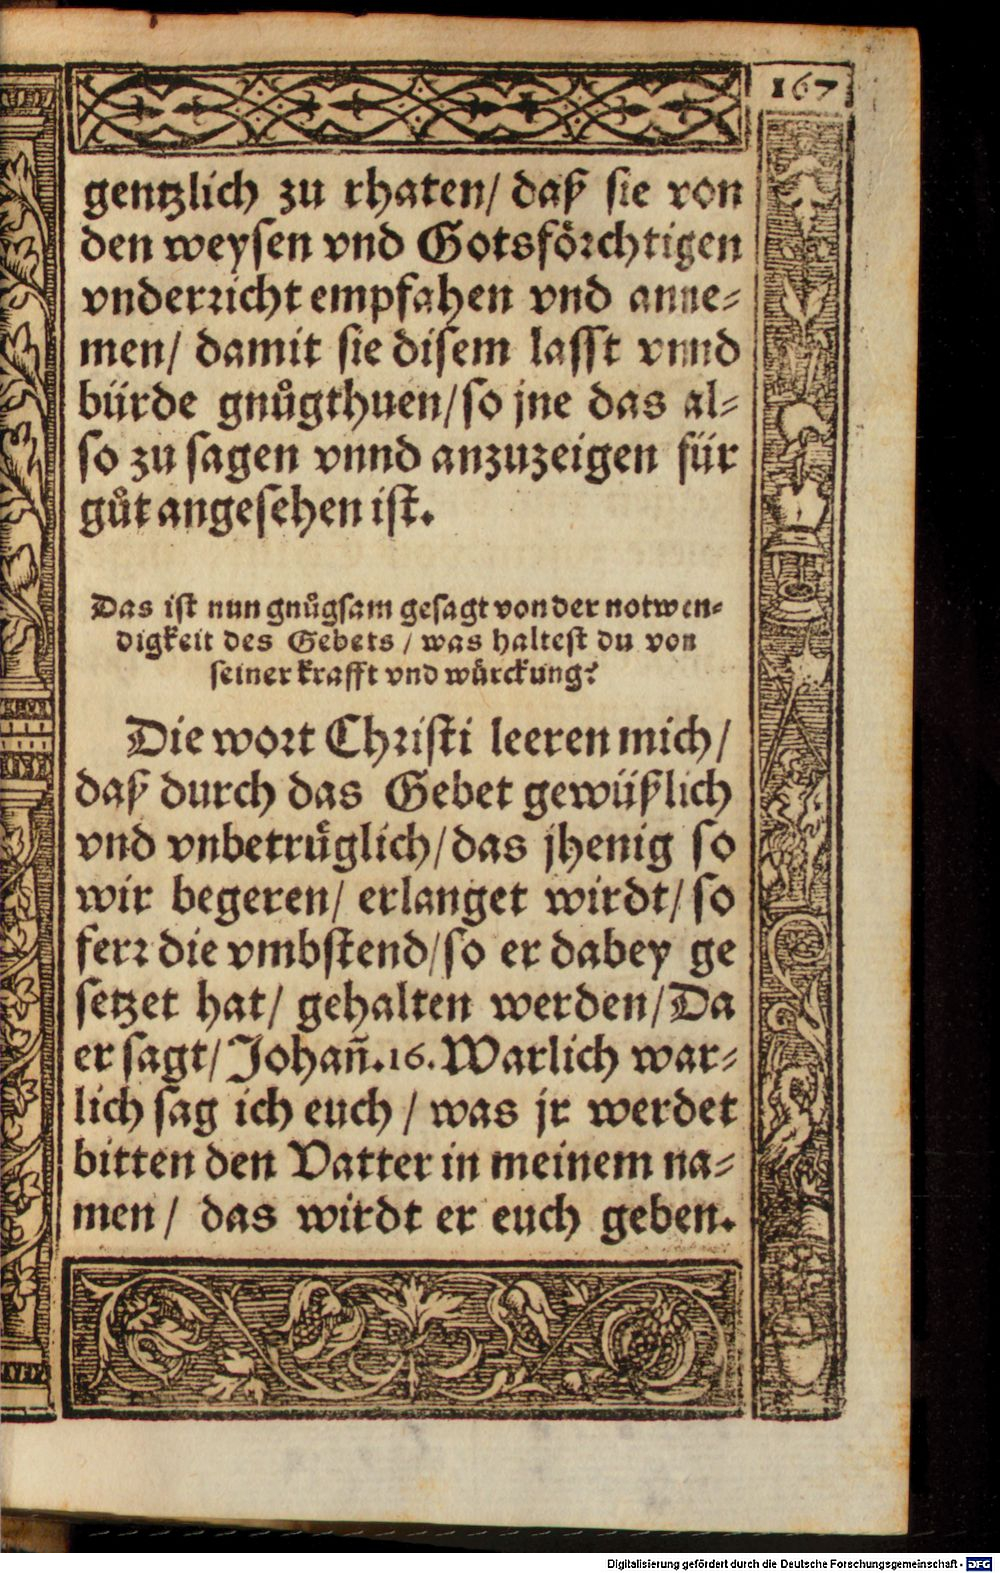 167
gentzlich zu rhaten/ daß sie von
den weysen vnd Gotsförchtigen
vnderricht empfahen vnd anne-
men/ damit sie disem lasst vnnd
bürde gnůgthuen/ so jne das al-
so zu sagen vnnd anzuzeigen für
gůt angesehen ist.
Das ist nun gnůgsam gesagt von der notwen-
digkeit des Gebets / was haltest du von
seiner krafft vnd würckung?
Die wort Christi leeren mich/
daß durch das Gebet gewüßlich
vnd vnbetrüglich/ das jhenig so
wir begeren/ erlanget wirdt/ so
ferr die vmbstend/ so er dabey ge
setzet hat/ gehalten werden/ Da
er sagt/ Johañ.16. Warlich war-
lich sag ich euch / was jr werdet
bitten den Vatter in meinem na-
men/ das wirdt er euch geben.
Digitalisierung gefördert durch die Deutsche Forschungsgemeinschaft - DFG